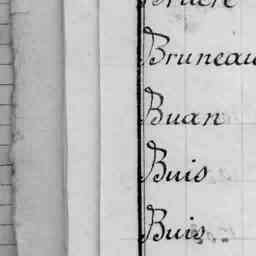 Bruneau
Buan
Buis
Buis